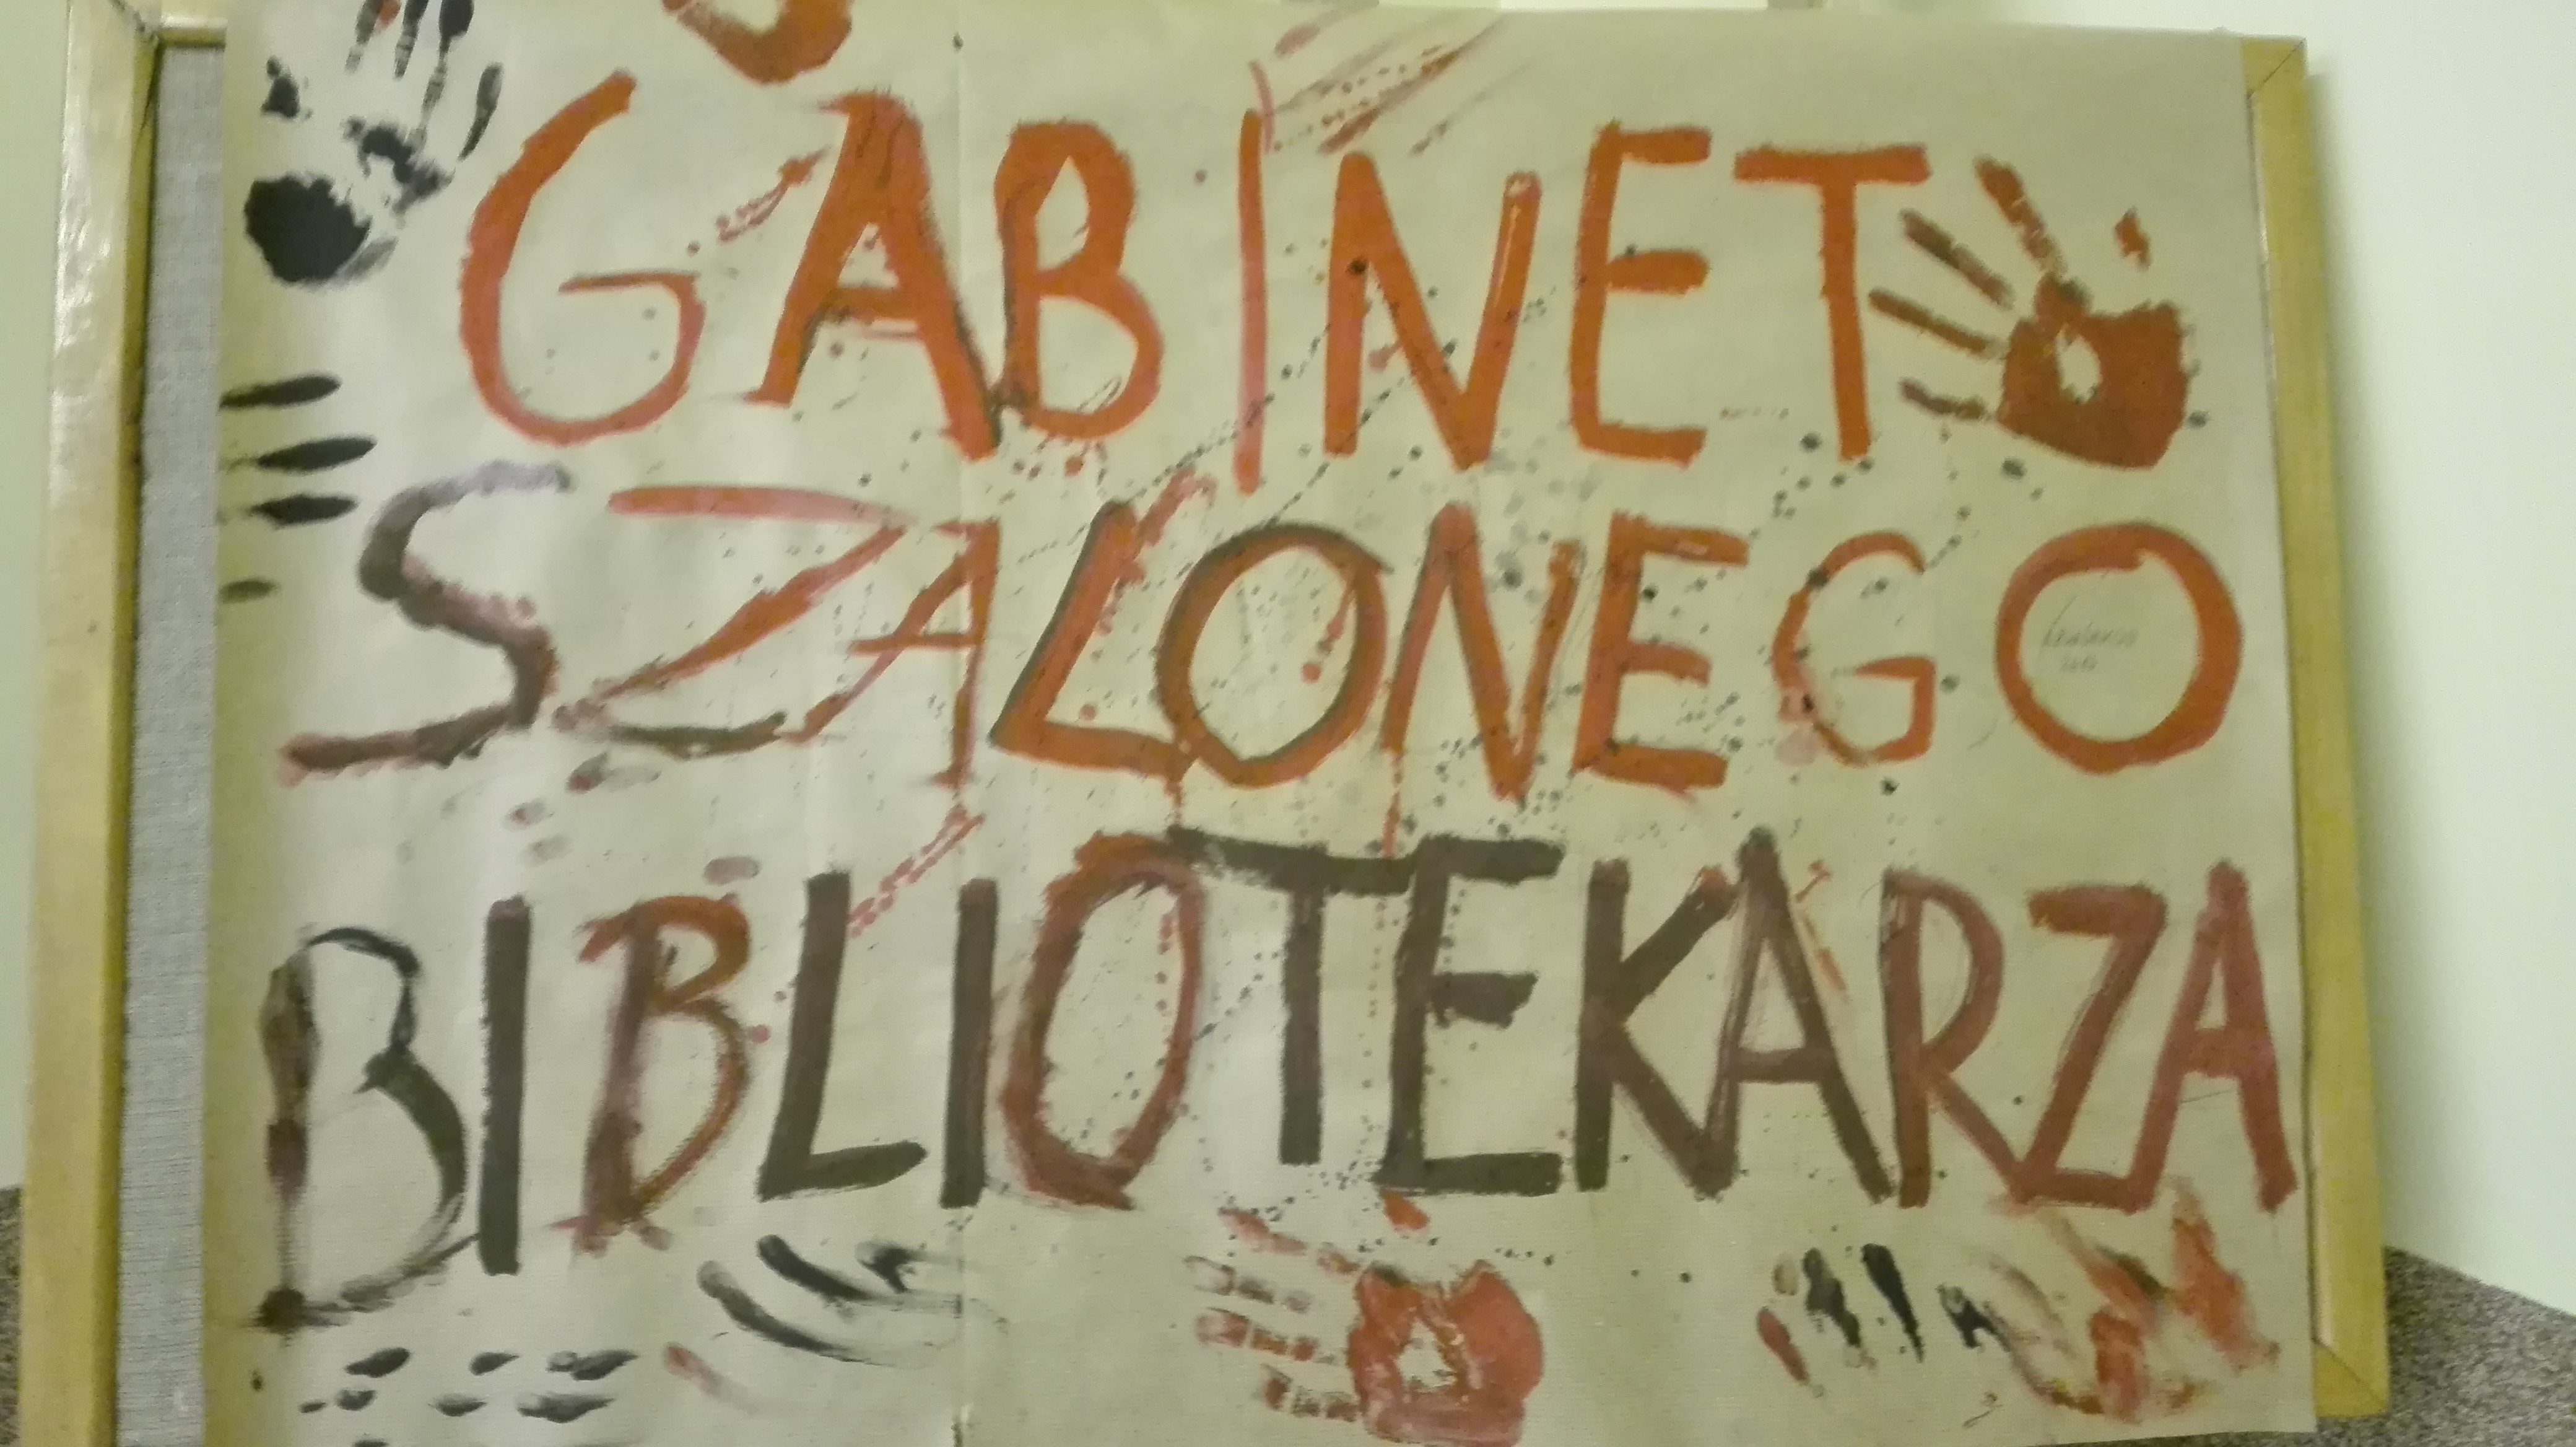 GABINET
SZALONEGO
BIBLIOTEKARZA